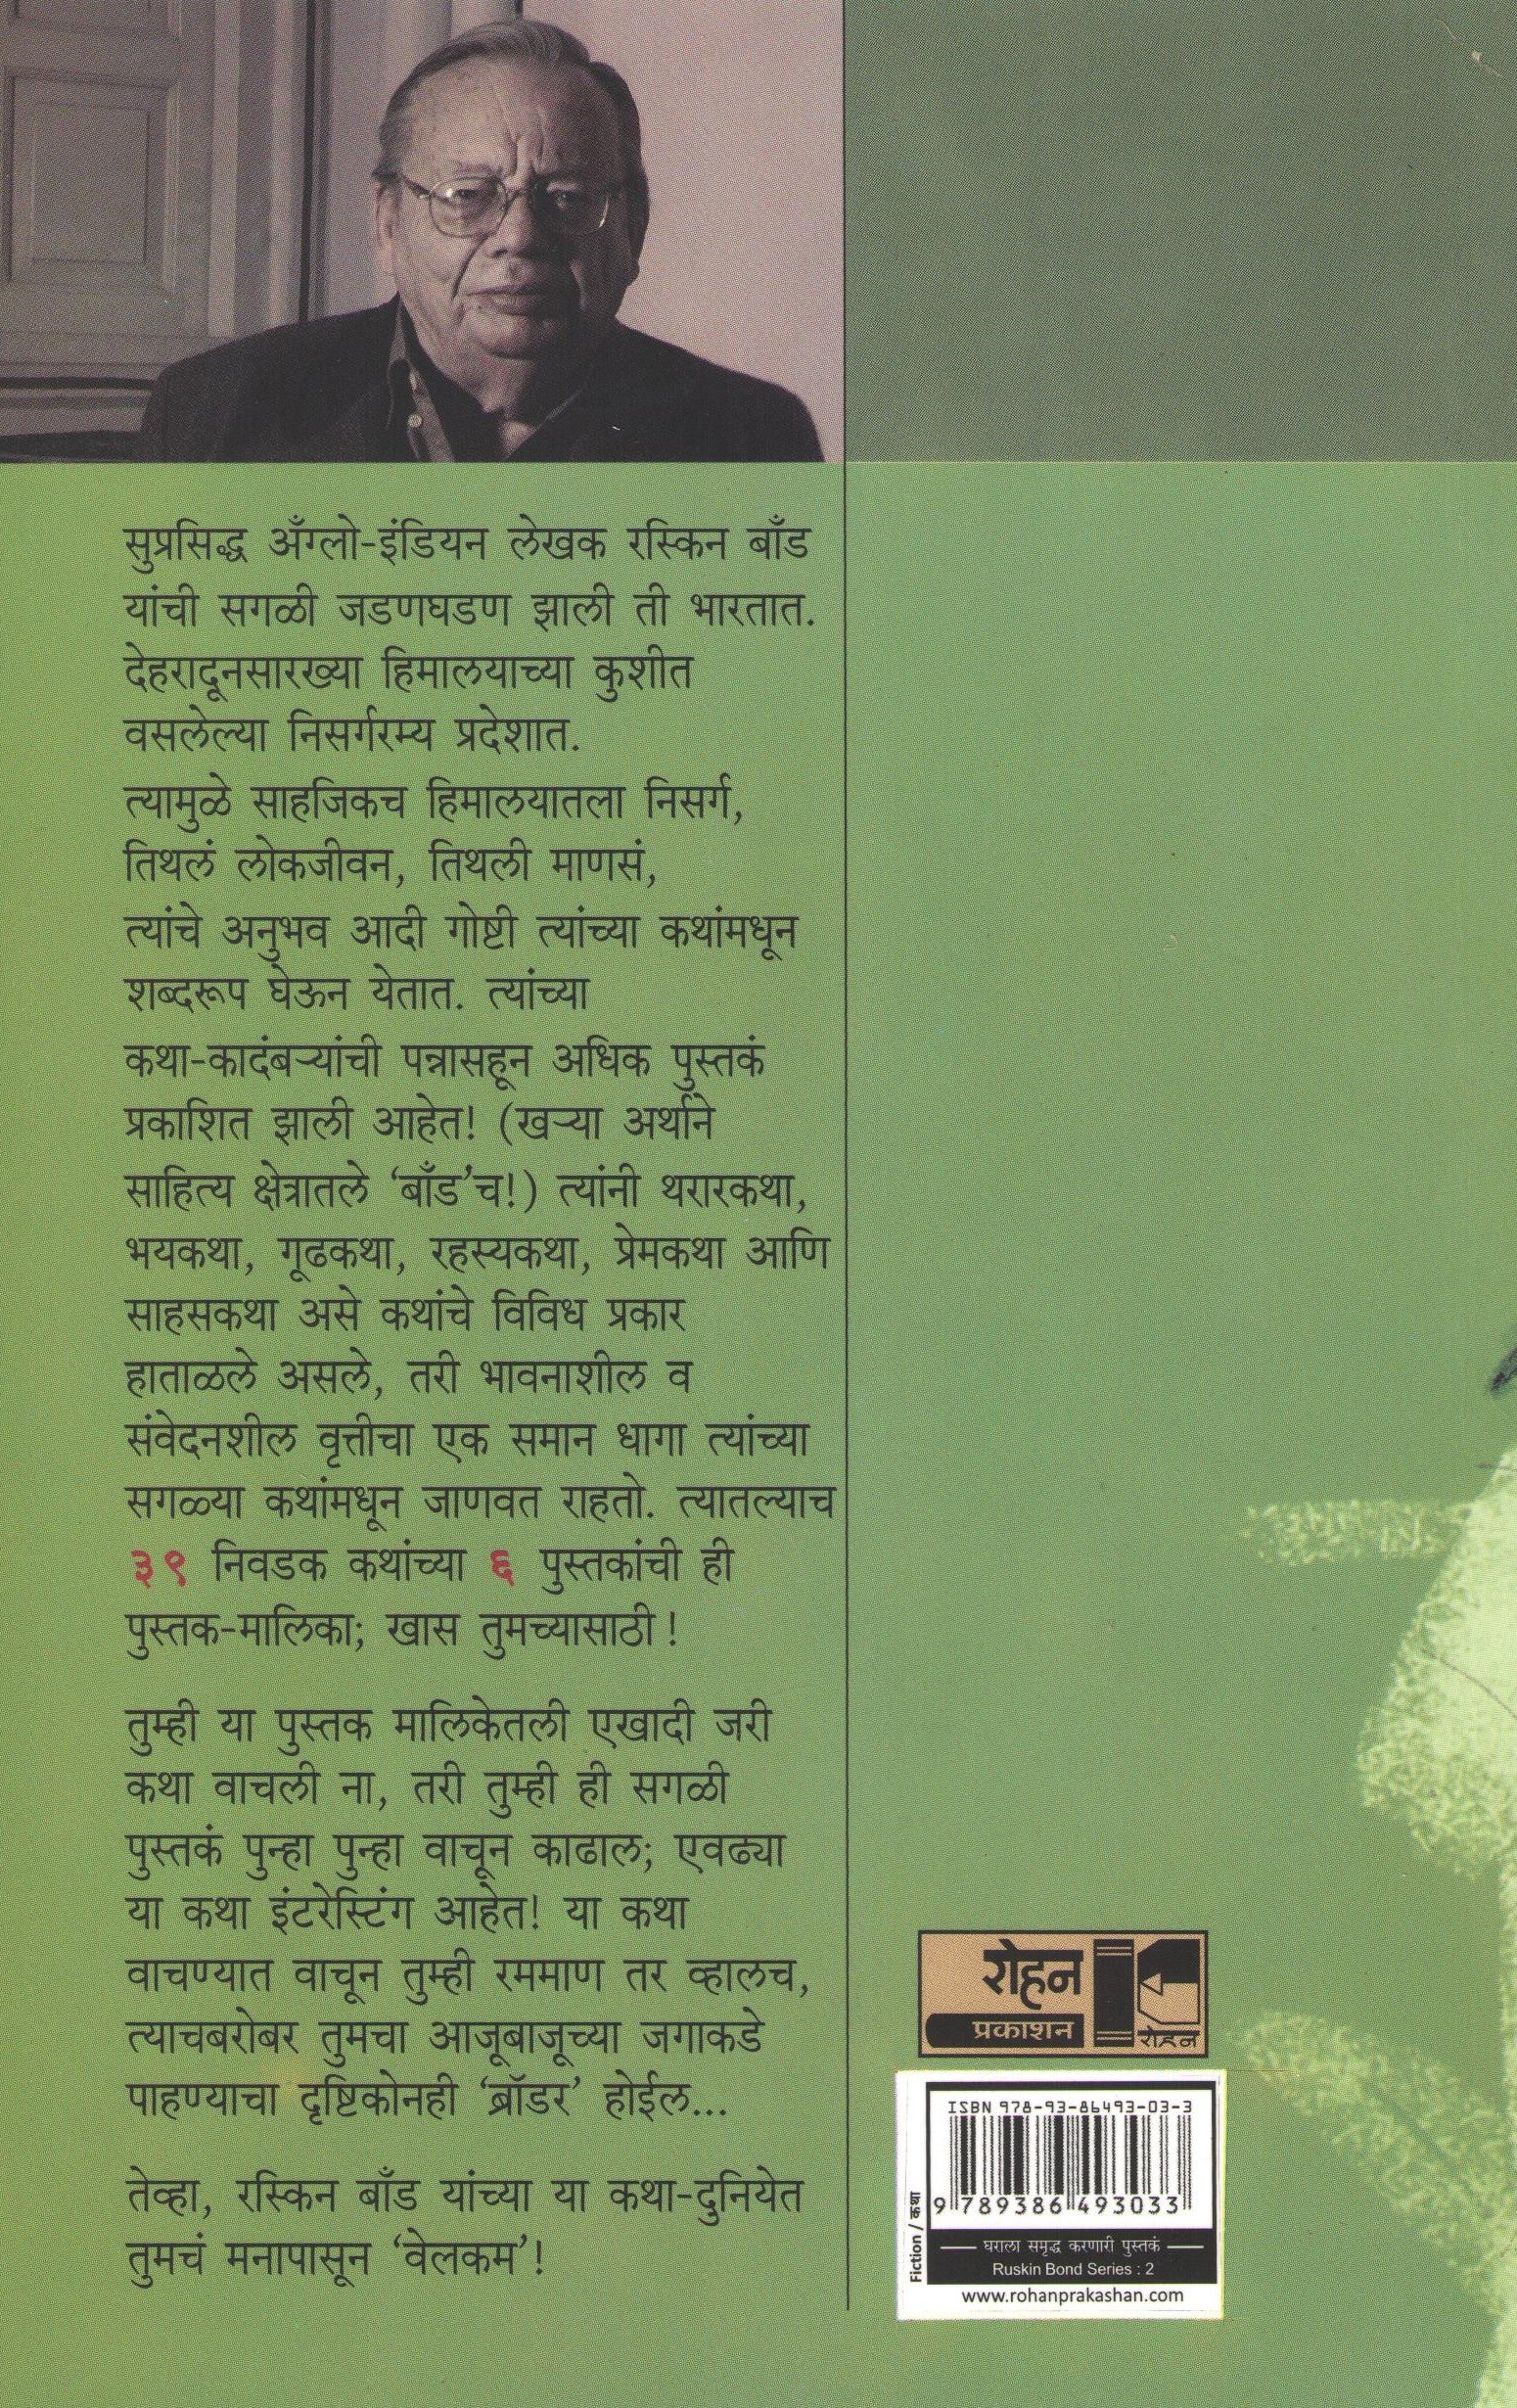 सुप्रसिद्ध अँग्लो-इंडियन लेखक रस्किन बाँड
यांची सगळी जडणघडण झाली ती भारतात.
देहरादूनसारख्या हिमालयाच्या कुशीत
वसलेल्या निसर्गरम्य प्रदेशात.
त्यामुळे साहजिकच हिमालयातला निसर्ग,
तिथलं लोकजीवन, तिथली माणसं,
त्यांचे अनुभव आदी गोष्टी त्यांच्या कथांमधून
शब्दरूप घेऊन येतात. त्यांच्या
कथा-कादंबऱ्यांची पन्नासहून अधिक पुस्तकं
प्रकाशित झाली आहेत! (खऱ्या अर्थाने
साहित्य क्षेत्रातले ‘बाँड’च!) त्यांनी थरारकथा,
भयकथा, गूढकथा, रहस्यकथा, प्रेमकथा आणि
साहसकथा असे कथांचे विविध प्रकार
हाताळले असले, तरी भावनाशील व
संवेदनशील वृत्तीचा एक समान धागा त्यांच्या
सगळ्या कथांमधून जाणवत राहतो. त्यातल्याच
३९ निवडक कथांच्या ६ पुस्तकांची ही
पुस्तक-मालिका; खास तुमच्यासाठी!
तुम्ही या पुस्तक मालिकेतली एखादी जरी
कथा वाचली ना, तरी तुम्ही ही सगळी
पुस्तकं पुन्हा पुन्हा वाचून काढाल; एवढ्या
या कथा इंटरेस्टिंग आहेत! या कथा
वाचण्यात वाचून तुम्ही रममाण तर व्हालच,
त्याचबरोबर तुमचा आजूबाजूच्या जगाकडे
पाहण्याचा दृष्टिकोनही ‘ब्रॉडर’ होईल...
तेव्हा, रस्किन बाँड यांच्या या कथा-दुनियेत
तुमचं मनापासून ‘वेलकम’!
रोहन
प्रकाशन
रोहन
ISBN 978-93-86493-03-3
9 789386 493033
Fiction / कथा
घराला समृद्ध करणारी पुस्तकं
Ruskin Bond Series : 2
www.rohanprakashan.com